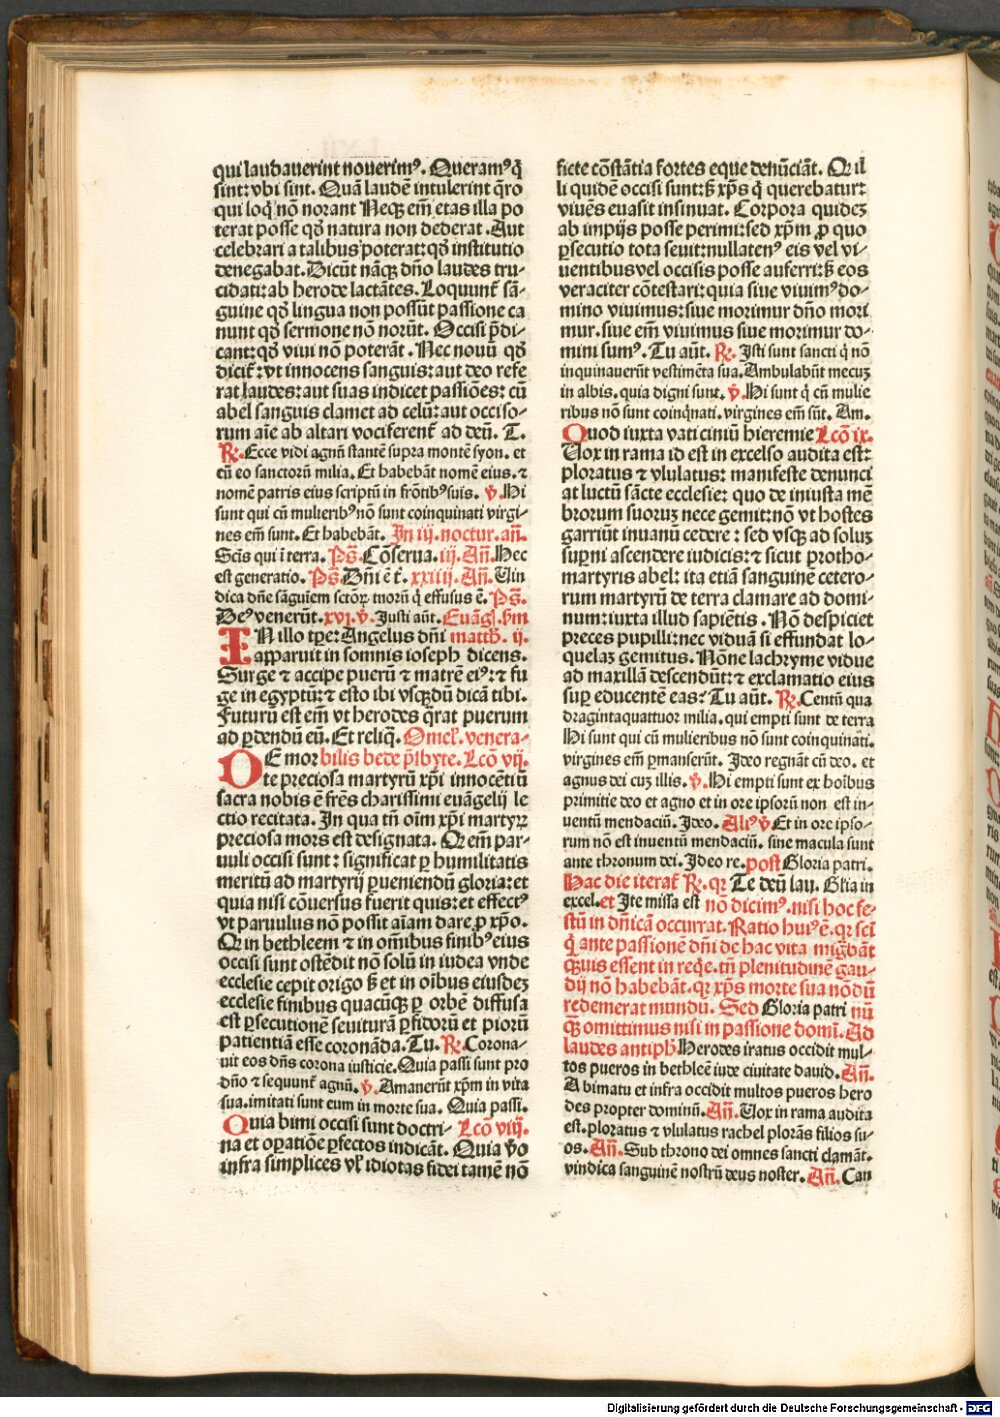 qui laudauerint nouerimꝰ. Queramꝰ q̄
sint: vbi sint. Quā laudē intulerint q̄ro
qui loq̄ nō norant Neqꝫ em̄ etas illa po
terat posse qđ natura non dederat. Aut
celebrari a talibus poterat: qđ institutio
denegabat. Dicūt nāqꝫ dño laudes tru-
cidati: ab herode lactātes. Loquunt᷑ sā-
guine qđ lingua non possūt passione ca
nunt qđ sermone nō norūt. Occisi p̄di-
cant: qđ viui nō poterāt. Nec nouū qđ
dicit᷑: vt innocens sanguis: aut deo refe
rat laudes: aut suas indicet passiōes: cū
abel sanguis clamet ad celū: aut occiso-
rum aīe ab altari vociferent᷑ ad deū. T.
℟. Ecce vidi agnū stantē supra montē syon. et
cū eo sanctorū milia. Et habebāt nomē eius. ⁊
nomē patris eius scriptū in frōtibꝰ suis. ℣. Hi
sunt qui cū mulieribꝰ nō sunt coinquinati virgi-
nes em̄ sunt. Et habebāt. In iij. noctur. an̄.
Scīs qui ī terra. Ps̄. Cōserua. iij. An̄. Hec
est generatio. Ps̄. Dn̄i ē t᷑. xxiiij. An̄. Uin
dica dn̄e sāguīem sctōꝝ tuorū q̄ effusus ē. Ps̄.
Deꝰ venerūt. xvi. ℣. Justi aūt. Euāgl. s̄m
IN illo tꝑe: Angelus dn̄i matth. ij.
apparuit in somnis ioseph dicens.
Surge ⁊ accipe puerū ⁊ matrē eiꝰ: ⁊ fu
ge in egyptū: ⁊ esto ibi vsqꝫdū dicā tibi.
Futurū est em̄ vt herodes q̄rat puerum
ad ꝑdendū eū. Et reliq̄. Omel᷑. venera-
DE mor bilis bede p̄sbyte. Lcō vij.
te preciosa martyrū xp̄i innocētiū
sacra nobis ē fr̄es charissimi euāgelij le
ctio recitata. In qua tn̄ oīm xp̄i martyrꝝ
preciosa mors est designata. Qꝛ em̄ par-
uuli occisi sunt: significat ꝑ humilitatis
meritū ad martyrij ꝑueniendū gloriā: et
quia nisi cōuersus fuerit quis: et effectꝰ
vt paruulus nō possit aīam dare ꝓ xp̄o.
Qꝛ in bethleem ⁊ in oīmibus finibꝰ eius
occisi sunt ostēdit nō solū in iudea vnde
ecclesie cepit origo sꝫ et in oībus eiusdeꝫ
ecclesie finibus quacūqꝫ ꝑ orbē diffusa
est ꝑsecutionē seuiturā ꝑfidorū et piorū
patientiā esse coronāda. Tu. ℟. Corona-
uit eos dn̄s corona iusticie. Quia passi sunt pro
dn̄o ⁊ sequunt᷑ agnū. ℣. Amauerūt xp̄m in vita
sua. imitati sunt eum in morte sua. Quia passi.
Quia bimi occisi sunt doctri- Lcō viij.
na et oꝑatiōe ꝑfectos indicāt. Quia v̄o
infra simplices vl᷑ idiotas fidei tamē nō
ficte cōstātia fortes eque denūciāt. Qꝛ il
li quidē occisi sunt: sꝫ xp̄s q̄ querebatur:
viuēs euasit insinuat. Corpora quideꝫ
ab impijs posse perimi: sed xp̄m ꝓ quo
ꝑsecutio tota seuit: nullatenꝰ eis vel vi-
uentibus vel occisis posse auferri: sꝫ eos
veraciter cōtestari: quia siue viuimꝰ do-
mino viuimus: siue morimur dn̄o mori
mur. siue em̄ viuimus siue morimur do-
mini sumꝰ. Tu aūt. ℟. Isti sunt sancti q̄ nō
inquinauerūt vestimēta sua. Ambulabūt mecuꝫ
in albis. quia digni sunt. ℣. Hi sunt q̄ cū mulie
ribus nō sunt coinq̄nati. virgines em̄ sūt. Am.
Quod iuxta vaticiniū hieremie Lcō ix.
Uox in rama id est in excelso audita est:
ploratus ⁊ vlulatus: manifeste denunci
at luctū sācte ecclesie: quo de iniusta mē
brorum suoruꝫ nece gemit: nō vt hostes
garriūt inuanū cedere: sed vsqꝫ ad soluꝫ
suꝑni ascendere iudicis: ⁊ sicut protho-
martyris abel: ita etiā sanguinē cetero-
rum martyrū de terra clamare ad domi-
num: iuxta illud sapiētis. Nō despiciet
preces pupilli: nec viduā si effundat lo-
quelaꝫ gemitus. Nōne lachryme vidue
ad maxillā descendūt: ⁊ exclamatio eius
suꝑ educentē eas? Tu aūt. ℟. Centū qua
dragintaquattuor milia. qui empti sunt de terra
Hi sunt qui cū mulieribus nō sunt coinquinati.
virgines em̄ ꝑmanserūt. Ideo regnāt cū deo. et
agnus dei cuꝫ illis. ℣. Hi empti sunt ex hoībus
primitie deo et agno et in ore ipsorū non est in-
uentū mendaciū. Ideo. Aliꝰ ℣ Et in ore ipso-
rum nō est inuentū mendaciū. sine macula sunt
ante thronum dei. Ideo re. post Gloria patri.
Hac die iterat᷑ ℟. qꝛ Te deū lau. Glīa in
excel. et Ite missa est nō dicimꝰ. nisi hoc fe-
stū in dn̄icā occurrat. Ratio huiꝰ ē. qꝛ scī
q̄ ante passionē dn̄i de hac vita migrabāt
qꝫuis essent in reqͥe. tn̄ plenitudinē gau-
dij nō habebāt. qꝛ xp̄s morte sua nōdū
redemerat mundū. Sed Gloria patri nū
qꝫ omittimus nisi in passione domī. Ad
laudes antiph̄. Herodes iratus occidit mul-
tos pueros in bethleē iude ciuitate dauid. An̄.
A bimatu et infra occidit multos pueros hero
des propter dominū. An̄. Uox in rama audita
est. ploratus ⁊ vlulatus rachel plorās filios su-
os. An̄. Sub throno dei omnes sancti clamāt.
vindica sanguinē nostrū deus noster. An̄. Can
Digitalisierung gefördert durch die Deutsche Forschungsgemeinschaft - DFG